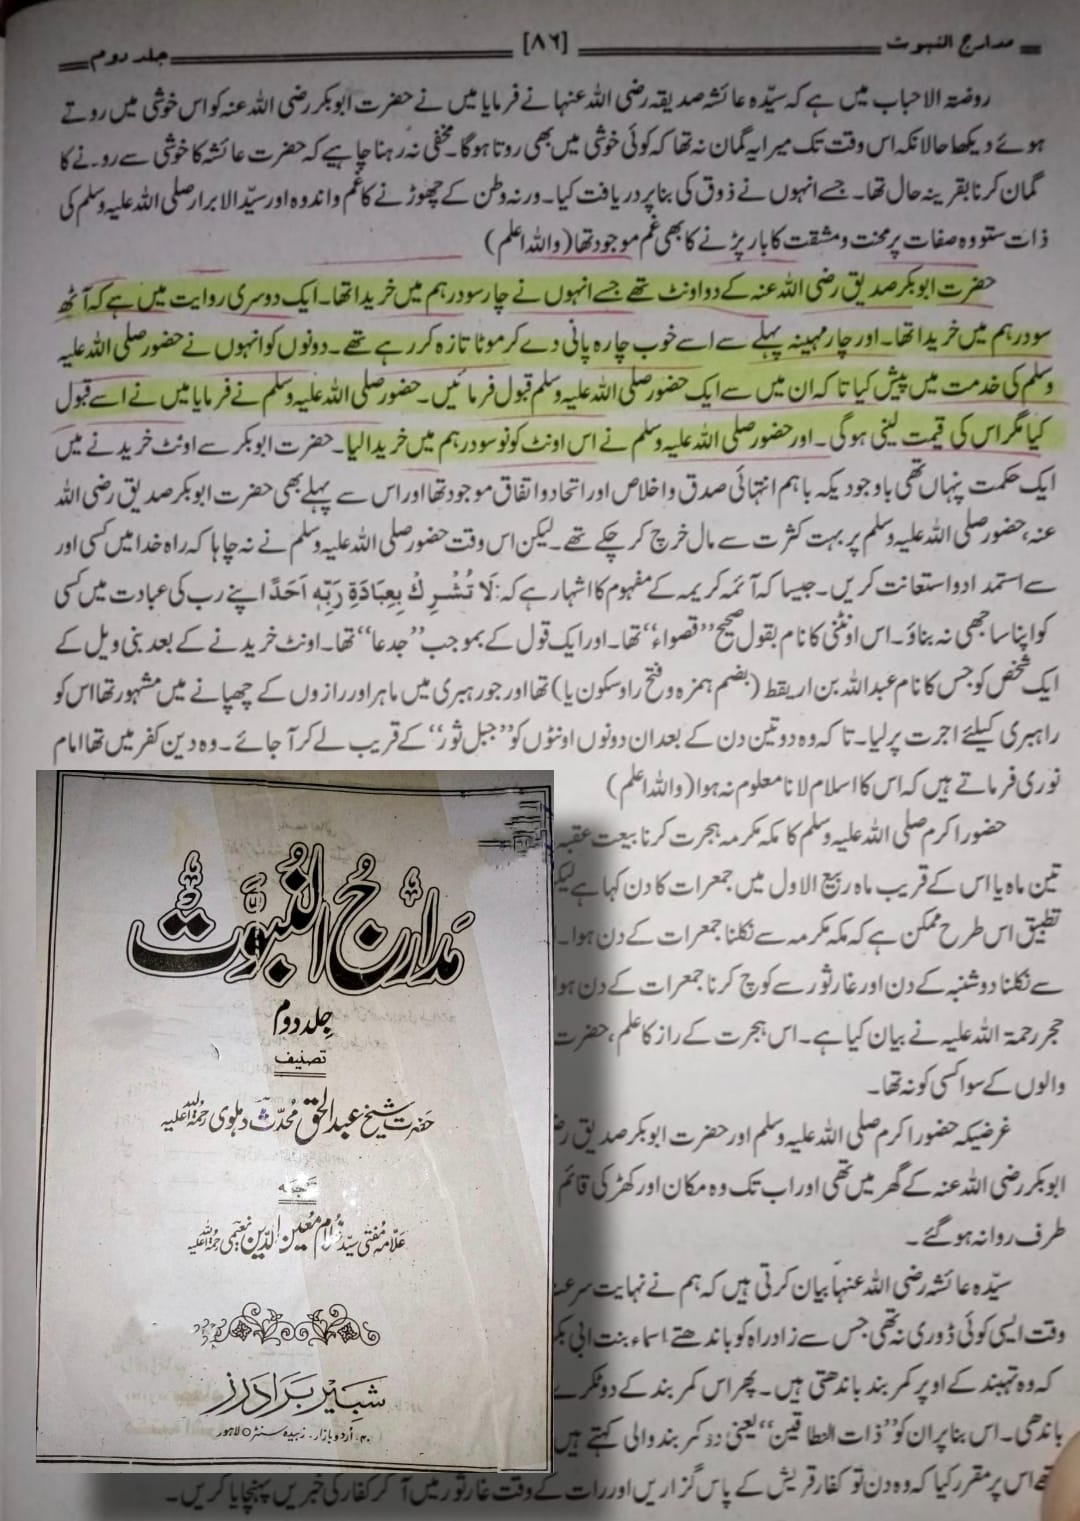 مدارج النبوت [۸۶] جلد دوم
روضۃ الاحباب میں ہے کہ سیّدہ عائشہ صدیقہ رضی اللہ عنہا نے فرمایا میں نے حضرت ابوبکر رضی اللہ عنہ کو اس خوشی میں روتے
ہوئے دیکھا حالانکہ اس وقت تک میرا یہ گمان نہ تھا کہ کوئی خوشی میں بھی روتا ہوگا۔ مخفی نہ رہنا چاہیے کہ حضرت عائشہ کا خوشی سے رونے کا
گمان کرنا بقرینہ حال تھا۔ جسے انہوں نے ذوق کی بنا پر دریافت کیا۔ ورنہ وطن کے چھوڑنے کا غم واندوہ اور سیّد الابرار صلی اللہ علیہ وسلم کی
ذات ستودہ صفات پر محنت ومشقت کا بار پڑنے کا بھی غم موجود تھا (واللہ اعلم)
حضرت ابوبکر صدیق رضی اللہ عنہ کے دو اونٹ تھے جسے انہوں نے چار سو درہم میں خریدا تھا۔ ایک دوسری روایت میں ہے کہ آٹھ
سو درہم میں خریدا تھا۔ اور چار مہینہ پہلے سے اسے خوب چارہ پانی دے کر موٹا تازہ کر رہے تھے۔ دونوں کو انہوں نے حضور صلی اللہ علیہ
وسلم کی خدمت میں پیش کیا تا کہ ان میں سے ایک حضور صلی اللہ علیہ وسلم قبول فرمائیں۔ حضور صلی اللہ علیہ وسلم نے فرمایا میں نے اسے قبول
کیا مگر اس کی قیمت لینی ہوگی۔ اور حضور صلی اللہ علیہ وسلم نے اس اونٹ کو نو سو درہم میں خریدا لیا۔ حضرت ابوبکر سے اونٹ خریدنے میں
ایک حکمت پنہاں تھی باوجودیکہ باہم انتہائی صدق واخلاص اور اتحاد واتفاق موجود تھا اور اس سے پہلے بھی حضرت ابوبکر صدیق رضی اللہ
عنہ، حضور صلی اللہ علیہ وسلم پر بہت کثرت سے مال خرچ کر چکے تھے۔ لیکن اس وقت حضور صلی اللہ علیہ وسلم نے نہ چاہا کہ راہ خدا میں کسی اور
سے استمداد واستعانت کریں۔ جیسا کہ آئمہ کریمہ کے مفہوم کا اشہار ہے کہ: لَا تُشْرِكْ بِعِبَادَةِ رَبِّهٖ اَحَدًا اپنے رب کی عبادت میں کسی
کو اپنا ساجھی نہ بناؤ۔ اس اونٹنی کا نام بقول صحیح ’’قصواء‘‘ تھا۔ اور ایک قول کے بموجب ’’جدعا‘‘ تھا۔ اونٹ خریدنے کے بعد بنی ویل کے
ایک شخص کو جس کا نام عبداللہ بن اریقط (بضم ہمزہ وفتح را وسکون یا) تھا اور جو رہبری میں ماہر اور رازوں کے چھپانے میں مشہور تھا اس کو
راہبری کیلئے اجرت پر لیا۔ تا کہ وہ دو تین دن کے بعد ان دونوں اونٹوں کو ’’جبل ثور‘‘ کے قریب لے کر آ جائے۔ وہ دین کفر میں تھا امام
نوری فرماتے ہیں کہ اس کا اسلام لانا معلوم نہ ہوا (واللہ اعلم)
حضور اکرم صلی اللہ علیہ وسلم کا مکہ مکرمہ ہجرت کرنا بیعت عقبہ
تین ماہ یا اس کے قریب ماہ ربیع الاول میں جمعرات کا دن کہا ہے لیکن
تطبیق اس طرح ممکن ہے کہ مکہ مکرمہ سے نکلنا جمعرات کے دن ہوا۔
سے نکلنا دو شنبہ کے دن اور غار ثور سے کوچ کرنا جمعرات کے دن ہوا
حجر رحمۃ اللہ علیہ نے بیان کیا ہے۔ اس ہجرت کے راز کا علم، حضرت
والوں کے سوا کسی کو نہ تھا۔
غرضیکہ حضور اکرم صلی اللہ علیہ وسلم اور حضرت ابوبکر صدیق
ابوبکر رضی اللہ عنہ کے گھر میں تھی اور اب تک وہ مکان اور کھڑکی قائم
طرف روانہ ہو گئے۔
سیّدہ عائشہ رضی اللہ عنہا بیان کرتی ہیں کہ ہم نے نہایت
وقت ایسی کوئی ڈوری نہ تھی جس سے زاد راہ کو باندھتے اسماء بنت ابی بکر
کہ وہ تہبند کے اوپر کمر بند باندھتی ہیں۔ پھر اس کمر بند کے دو ٹکڑے
باندھی۔ اس بنا پر ان کو ’’ذات النطاقین‘‘ یعنی دو کمر بند والی کہتے ہیں
اس پر مقرر کیا کہ وہ دن تو کفار قریش کے پاس گزاریں اور رات کے وقت غار ثور میں آ کر کفار کی خبریں پہنچایا کریں۔
مدارج النبوت
جلد دوم
تصنیف
حضرت شیخ عبدالحق محدّث دہلوی رحمۃ اللہ علیہ
ترجمہ
علّامہ مفتی سیّد غلام معین الدّین نعیمی رحمۃ اللہ علیہ
شبیر برادرز
۴۰۔ اردو بازار۔ زبیدہ سنٹر ○ لاہور